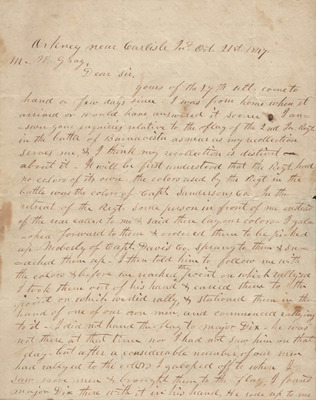 Orkney near Carlisle Ia. Oct. 21st 1847.
Dear sir,
yours of the 17th ult. came to
hand a few days since I was from home when it
arrived or would have answered it sooner I an-
swer your inquiries relative to the flag of the 2nd Ia Regt
in the battle of Buenavista as my recollection
serves me & I think my recollection is distinct
about it. It will be first understood that the Regt. had
no colors of its own. the colors used by the Regt in the
battle was the colors of Capt. Sandersons Co. In the
retreat of the Regt. some person in front of me
of the rear called to me & said there lay our colors I gal-
loped forward to them & ordered them to be pick'd
up. Nobody of Capt. Davis Co. sprang to them & sn-
ached them up. I then told him to follow me with
the colors & before we reached the point on which we rallyed
I took them out of his hand & carried them to the
point on which we did rally, & stationed them in the
hand of one of our own men, and commenced rallying
to it. I did not hand the flag to major Dix. he was
not there at that time nor I had not saw him on that
day. but after a considerable number of our men
had rallyed to the colors I galoped off to where I
saw some more & brought them to the flag, I found
major Dix there with it in his hand. He rode up to me